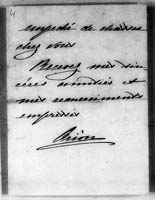 4
empêché de chasser
chez vous
Recevez mes sin
cères amitiés et
mes remerciements
empressés